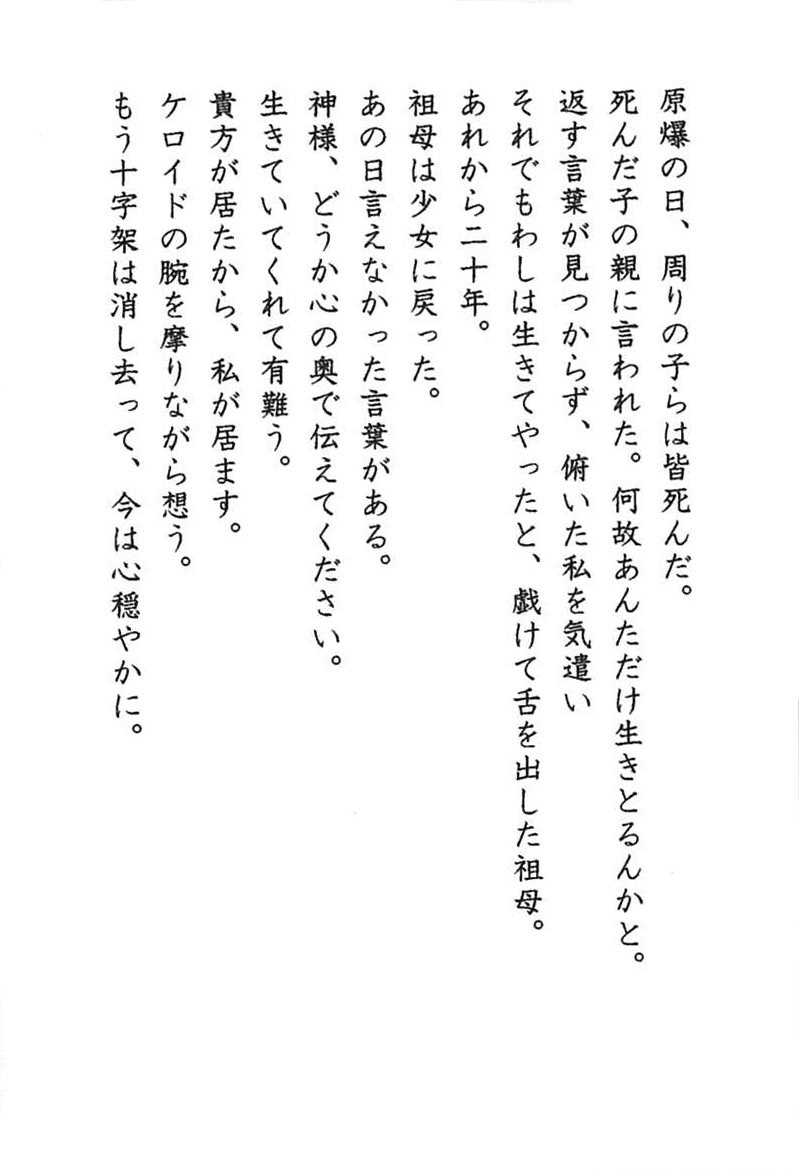 原爆の日、周りの子らは皆死んだ。
死んだ子の親に言われた。何故あんただけ生きとるんかと。
返す言葉が見つからず、俯いた私を気遣い
それでもわしは生きてやったと、戯けて舌を出した祖母。
あれから二十年。
祖母は少女に戻った。
あの日言えなかった言葉がある。
神様、どうか心の奥で伝えてください。
生きていてくれて有難う。
貴方が居たから、私が居ます。
ケロイドの腕を摩りながら想う。
もう十字架は消し去って、今は心穏やかに。